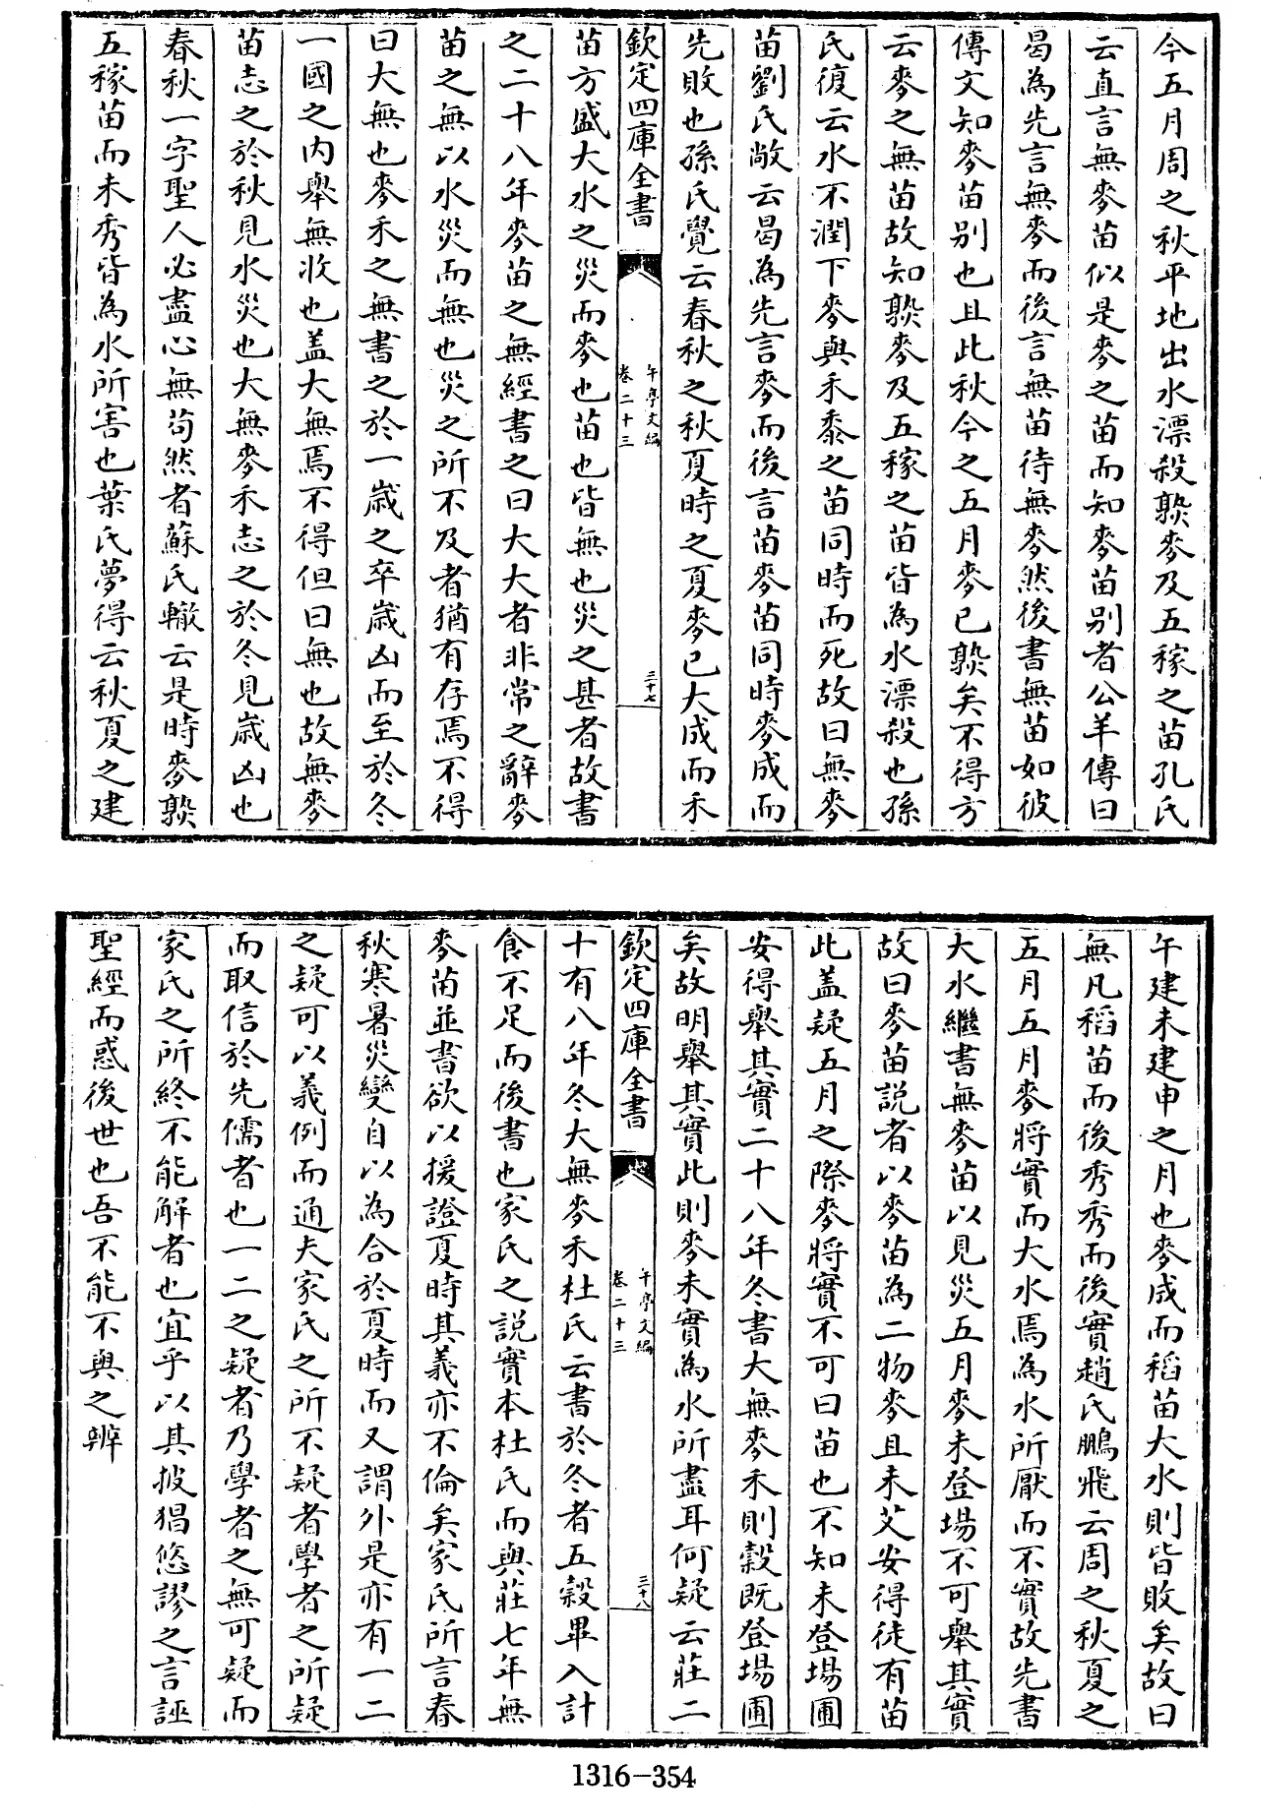 今五月周之秋平地出水漂殺䵃麥及五稼之苗孔氏
云直言無麥苗似是麥之苗而知麥苗别者公羊傳曰
曷為先言無麥而後言無苗待無麥然後書無苗如彼
傳文知麥苗别也且此秋今之五月麥已䵃矣不得方
云麥之無苗故知䵃麥及五稼之苗皆為水漂殺也孫
氏復云水不潤下麥與禾黍之苗同時而死故曰無麥
苗劉氏敞云曷為先言麥而後言苗麥苗同時麥成而
先敗也孫氏覺云春秋之秋夏時之夏麥已大成而禾
欽定四庫全書
午亭文編
卷二十三
三十七
苗方盛大水之災而麥也苗也皆無也災之甚者故書
之二十八年麥苗之無經書之曰大大者非常之辭麥
苗之無以水災而無也災之所不及者猶有存焉不得
曰大無也麥禾之無書之於一歳之卒歳凶而至於冬
一國之内舉無收也盖大無焉不得但曰無也故無麥
苗志之於秋見水災也大無麥禾志之於冬見歳凶也
春秋一字聖人必盡心無茍然者蘇氏轍云是時麥䵃
五稼苗而未秀皆為水所害也葉氏夢得云秋夏之建
午建未建申之月也麥成而稻苗大水則皆敗矣故曰
無凡稻苗而後秀秀而後實趙氏鵬飛云周之秋夏之
五月五月麥將實而大水焉為水所厭而不實故先書
大水繼書無麥苗以見災五月麥未登場不可舉其實
故曰麥苗説者以麥苗為二物麥且未艾安得徒有苗
此盖疑五月之際麥將實不可曰苗也不知未登場圃
安得舉其實二十八年冬書大無麥禾則穀既登場圃
矣故明舉其實此則麥未實為水所盡耳何疑云莊二
欽定四庫全書
午亭文編
卷二十三
三十八
十有八年冬大無麥禾杜氏云書於冬者五穀畢入計
食不足而後書也家氏之説實本杜氏而與莊七年無
麥苗並書欲以援證夏時其義亦不倫矣家氏所言春
秋寒暑災變自以為合於夏時而又謂外是亦有一二
之疑可以義例而通夫家氏之所不疑者學者之所疑
而取信於先儒者也一二之疑者乃學者之無可疑而
家氏之所終不能解者也宜乎以其披猖悠謬之言誣
聖經而惑後世也吾不能不與之辨
1316-354